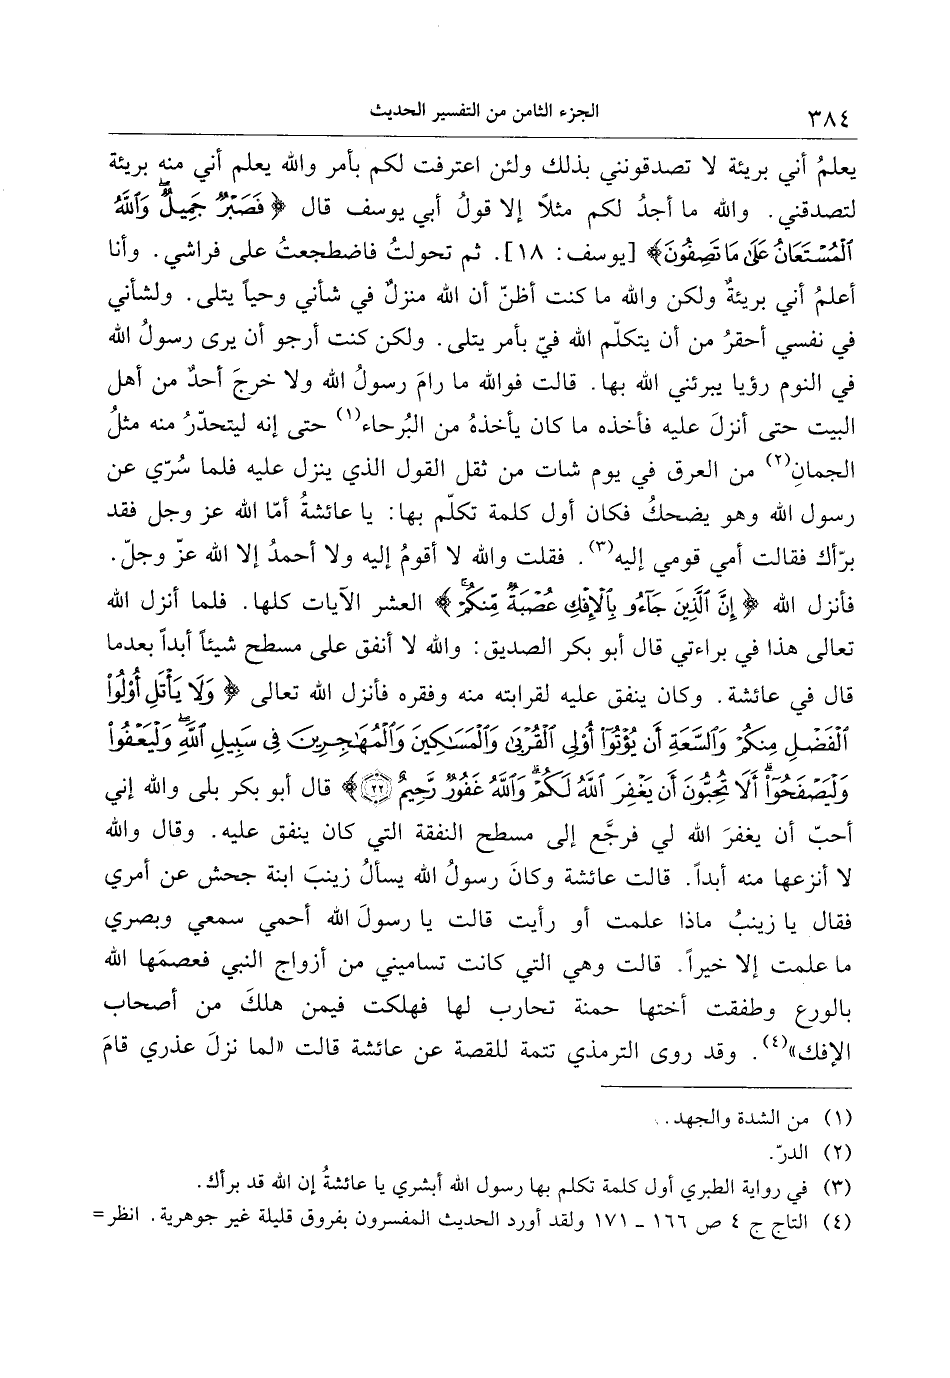 ٣٨٤ الجزء الثامن من التفسير الحديث
يعلمُ أني بريئة لا تصدقونني بذلك ولئن اعترفت لكم بأمر والله يعلم أني منه بريئة
لتصدقني. والله ما أجدُ لكم مثلاً إلا قولُ أبي يوسف قال ﴿فَصَبْرٌ جَمِيلٌۖ وَٱللَّهُ
ٱلْمُسْتَعَانُ عَلَىٰ مَا تَصِفُونَ﴾ [يوسف: ١٨]. ثم تحولتُ فاضطجعتُ على فراشي. وأنا
أعلمُ أني بريئةٌ ولكن والله ما كنت أظنّ أن الله منزلٌ في شأني وحياً يتلى. ولشأني
في نفسي أحقرُ من أن يتكلّم الله فيّ بأمر يتلى. ولكن كنت أرجو أن يرى رسولُ الله
في النوم رؤيا يبرئني الله بها. قالت فوالله ما رامَ رسولُ الله ولا خرجَ أحدٌ من أهل
البيت حتى أنزلَ عليه فأخذه ما كان يأخذهُ من البُرحاء(١) حتى إنه ليتحدّرُ منه مثلُ
الجمانِ(٢) من العرق في يوم شات من ثقل القول الذي ينزل عليه فلما سُرّي عن
رسول الله وهو يضحكُ فكان أول كلمة تكلّم بها: يا عائشةُ أمّا الله عز وجل فقد
برّأك فقالت أمي قومي إليه(٣). فقلت والله لا أقومُ إليه ولا أحمدُ إلا الله عزّ وجلّ.
فأنزل الله ﴿إِنَّ ٱلَّذِينَ جَآءُو بِٱلْإِفْكِ عُصْبَةٌ مِّنكُمْۚ﴾ العشر الآيات كلها. فلما أنزل الله
تعالى هذا في براءتي قال أبو بكر الصديق: والله لا أنفق على مسطح شيئاً أبداً بعدما
قال في عائشة. وكان ينفق عليه لقرابته منه وفقره فأنزل الله تعالى ﴿وَلَا يَأْتَلِ أُوْلُواْ
ٱلْفَضْلِ مِنكُمْ وَٱلسَّعَةِ أَن يُؤْتُوٓاْ أُوْلِى ٱلْقُرْبَىٰ وَٱلْمَسَٰكِينَ وَٱلْمُهَٰجِرِينَ فِى سَبِيلِ ٱللَّهِۖ وَلْيَعْفُواْ
وَلْيَصْفَحُوٓاْۗ أَلَا تُحِبُّونَ أَن يَغْفِرَ ٱللَّهُ لَكُمْۗ وَٱللَّهُ غَفُورٌ رَّحِيمٌ ٢٢﴾ قال أبو بكر بلى والله إني
أحبّ أن يغفرَ الله لي فرجَّع إلى مسطح النفقة التي كان ينفق عليه. وقال والله
لا أنزعها منه أبداً. قالت عائشة وكانَ رسولُ الله يسألُ زينبَ ابنة جحش عن أمري
فقال يا زينبُ ماذا علمت أو رأيت قالت يا رسولَ الله أحمي سمعي وبصري
ما علمت إلا خيراً. قالت وهي التي كانت تساميني من أزواج النبي فعصمَها الله
بالورع وطفقت أختها حمنة تحارب لها فهلكت فيمن هلكَ من أصحاب
الإفك»(٤). وقد روى الترمذي تتمة للقصة عن عائشة قالت «لما نزلَ عذري قامَ
(١) من الشدة والجهد.
(٢) الدرّ.
(٣) في رواية الطبري أول كلمة تكلم بها رسول الله أبشري يا عائشةُ إن الله قد برأك.
(٤) التاج ج ٤ ص ١٦٦ ـ ١٧١ ولقد أورد الحديث المفسرون بفروق قليلة غير جوهرية. انظر=